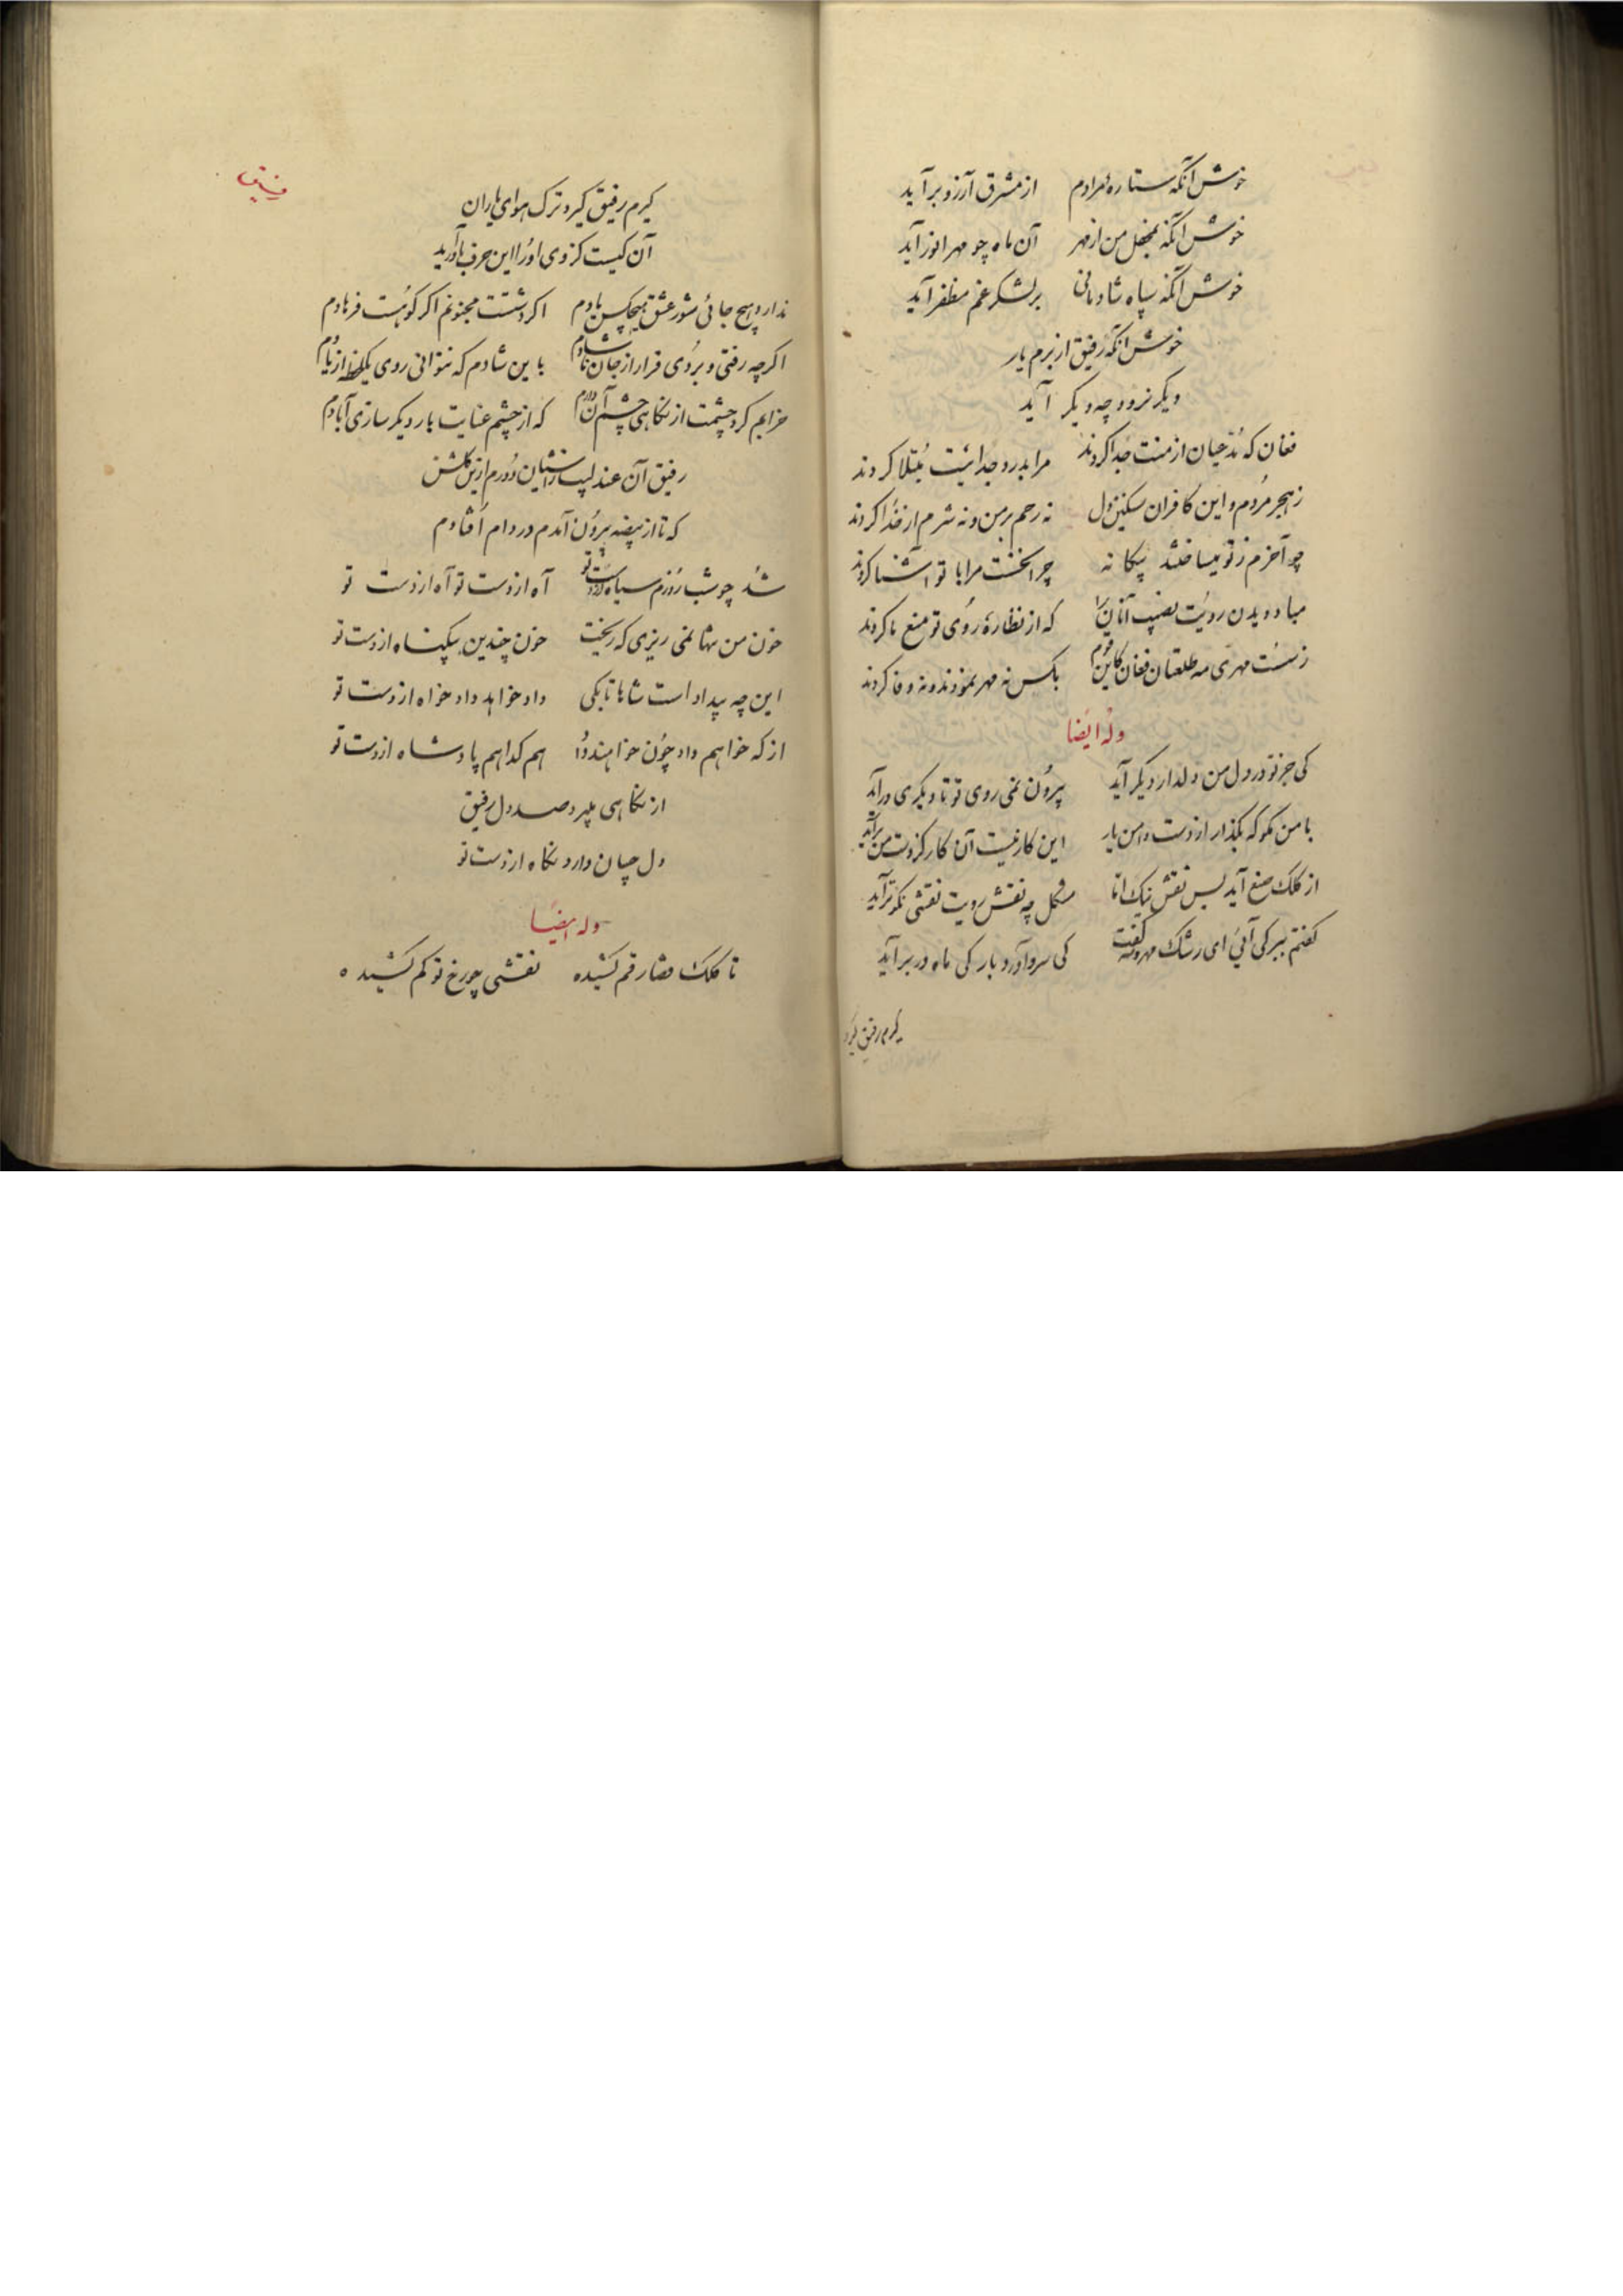 خوش آنکه ستاره مرادم از مشرق آرزو بر آید
خوش آنکه بمحفل من از مهر آن ماه چو مهر انور آید
خوش آنکه سپاه شادمانی بر لشکر غم مظفر آید
خوش آنکه رفیق از برم یار
دیگر نرود چه دیگر آید
فغان که مدعیان از منت جدا کردند مرا بدرد جدائیت مبتلا کردند
ز هجر مردم و این کافران سنگین دل نه رحم بر من و نه شرم از خدا کردند
چو آخرم ز تو میساختند بیگانه چرا نخست مرا با تو آشنا کردند
مباد دیدن رویت نصیب آنان را که از نظاره روی تو منع ما کردند
ز سست مهری مه طلعتان فغان کاین قوم بکس نه مهر نمودند و نه وفا کردند
وله ایضا
کی جز تو در دل من دلدار دیگر آید بیرون نمی روی تو تا دیگری در آید
با من مگو که بگذار از دست دامن یار این کار نیست آن کار کز دست من برآید
از کلک صنع آید بس نقش نیک اما مشکل چه نقش رویت نقشی نکوتر آید
گفتم ببر کی آئی ای رشک مهر و مه گفت کی سرو آورد بار کی ماه در بر آید
کرم رفیق گیرد
رفیق
کرم رفیق گیرد ترک هوای یاران
آن کیست کز وی او را این حرف باور آید
ندارد هیچ جائی شور عشق هیچکس یادم اگر دشتت مجنونم اگر کوهست فرهادم
اگرچه رفتی و بردی قرار از جان ناشادم باین شادم که نتوانی روی یکلحظه از یادم
خرابم کرد چشمت از نگاهی چشم آن دارم که از چشم عنایت بار دیگر سازی آبادم
رفیق آن عندلیب آشیان دورم ازین گلشن
که تا از بیضه بیرون آمدم در دام افتادم
شد چو شب روزم سیاه از دست تو آه از دست تو آه از دست تو
خون من تنها نمی ریزی که ریخت خون چندین بیگناه از دست تو
این چه بیداد است شاها تا بکی داد خواهد داد خواه از دست تو
از که خواهم داد چون خواهند داد هم گدا هم پادشاه از دست تو
از نگاهی میبرد صد دل رفیق
دل چسان دارد نگاه از دست تو
وله ایضا
تا کلک قضا رقم کشیده نقشی چو رخ تو کم کشیده